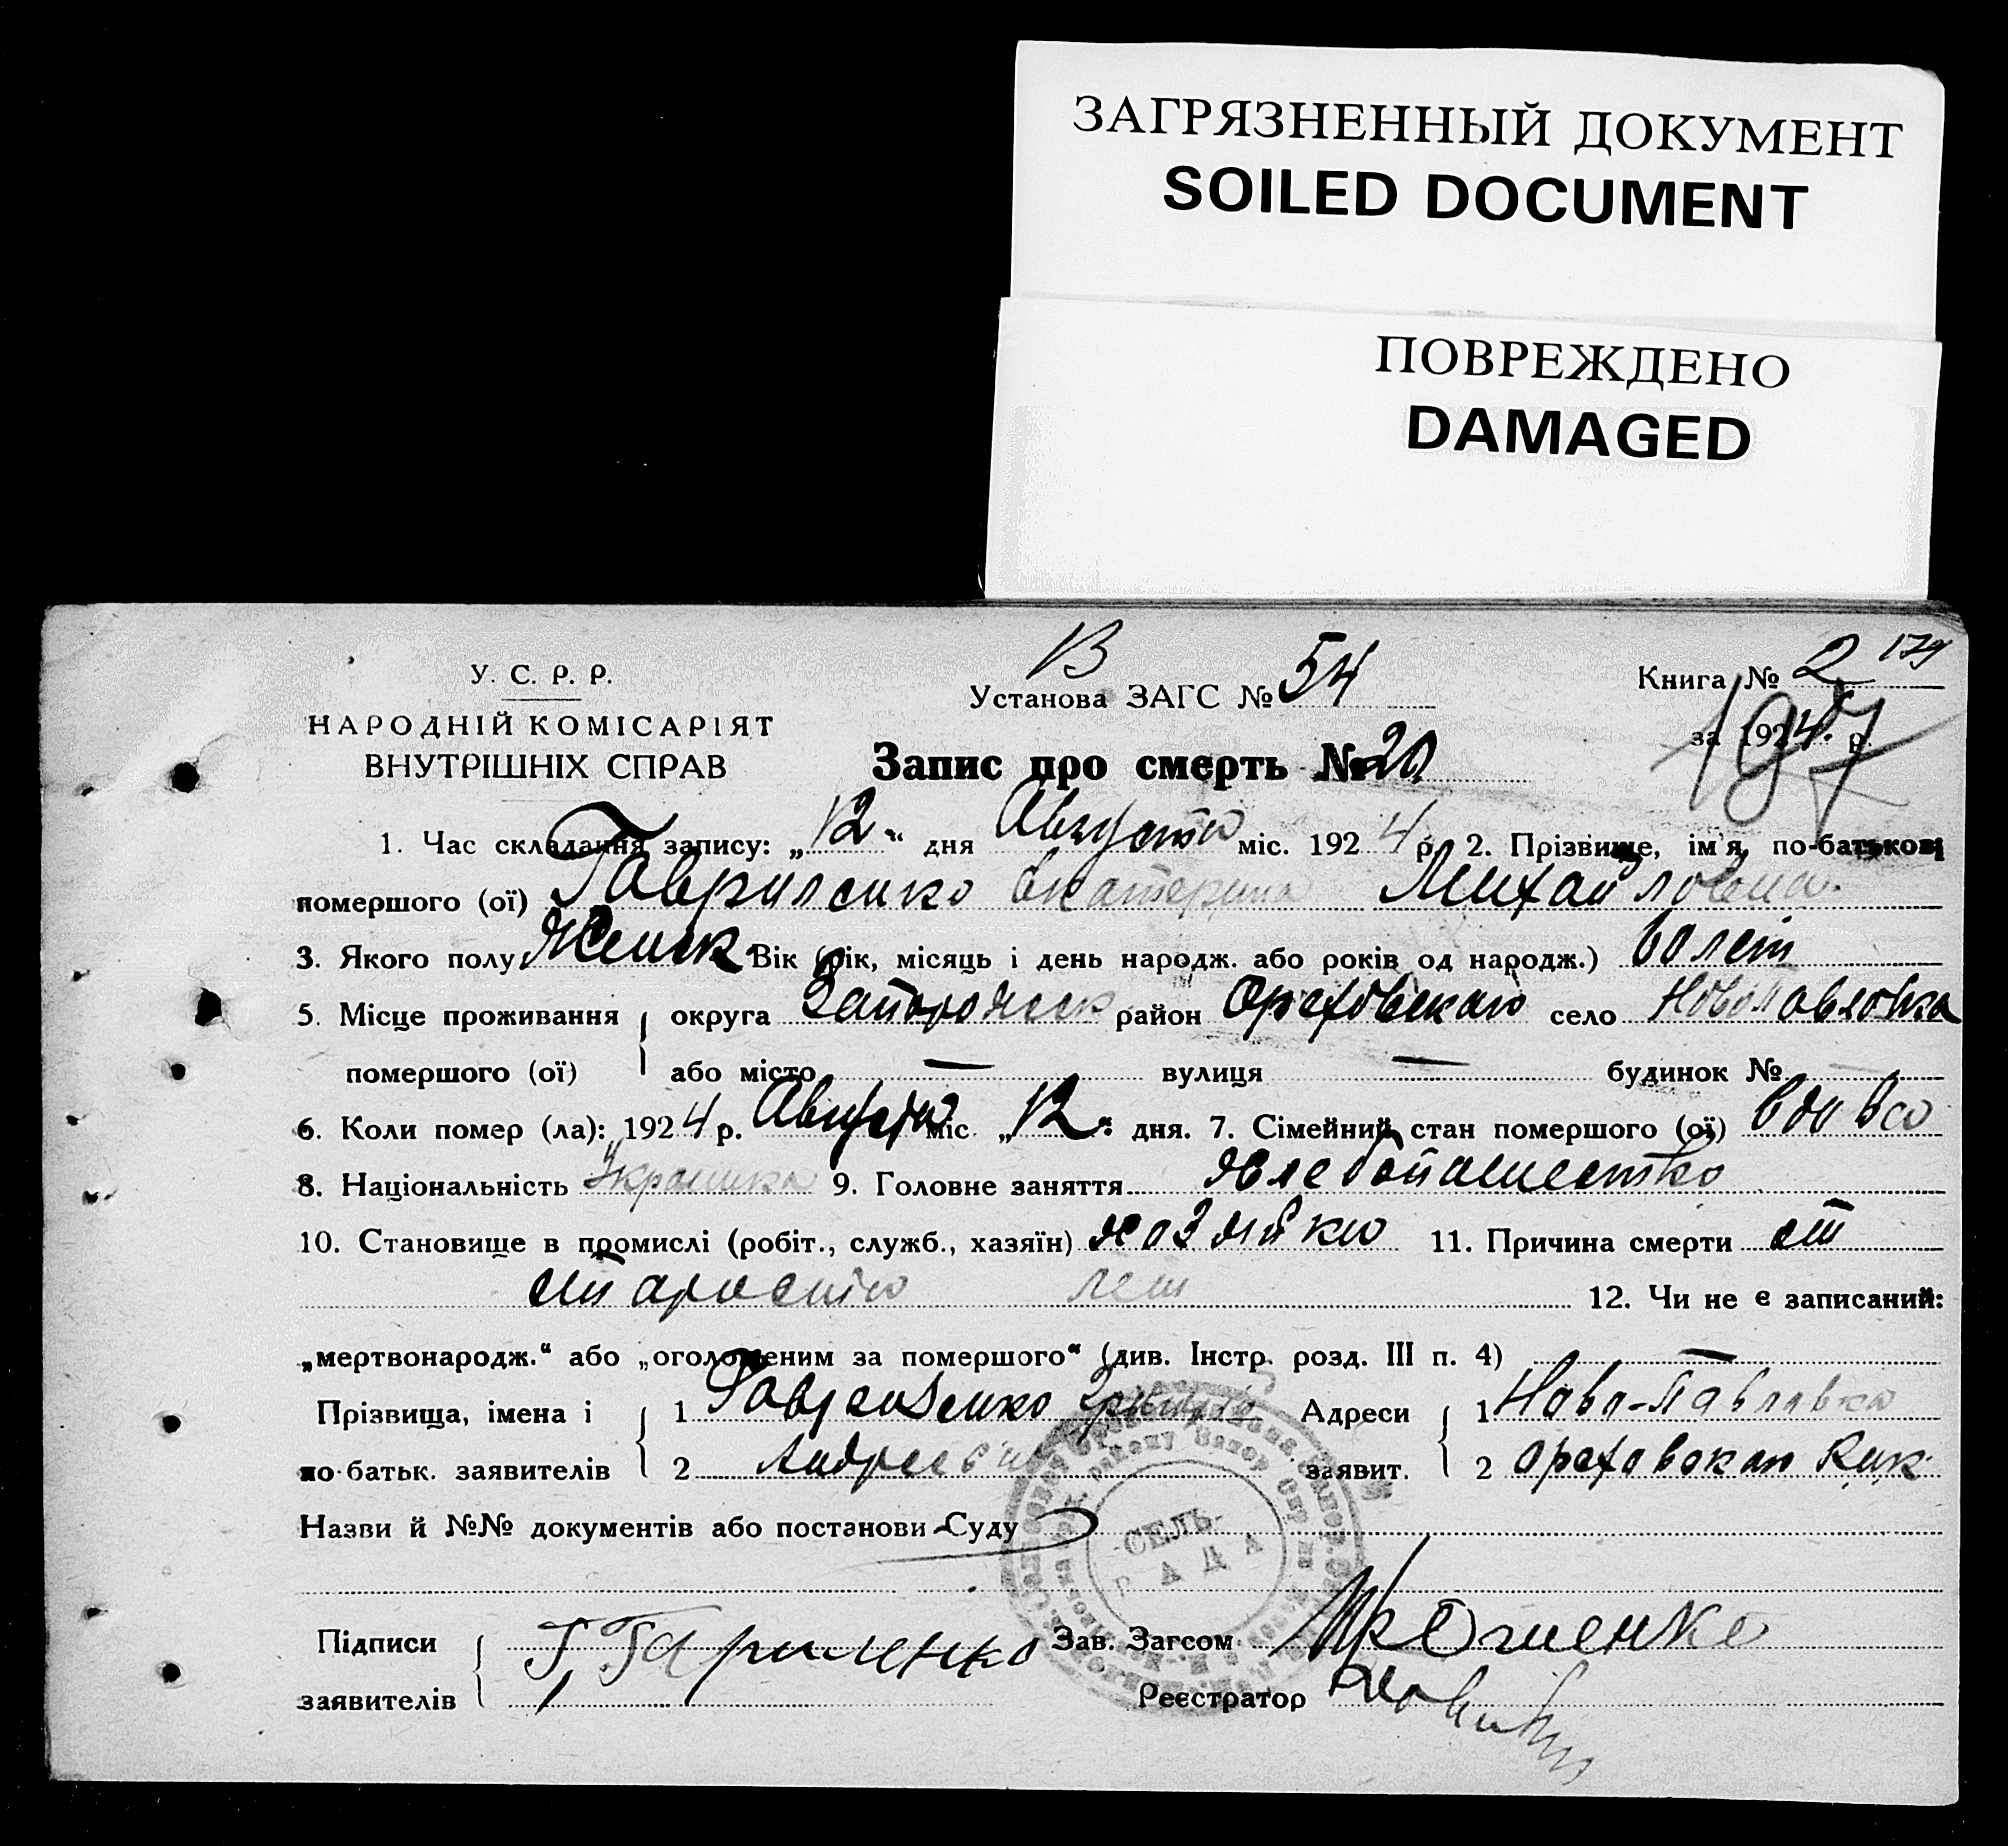 ЗАГРЯЗНЕННЫЙ ДОКУМЕНТ
SOILED DOCUMENT
ПОВРЕЖДЕНО
DAMAGED
У. С. Р. Р.
НАРОДНІЙ КОМІСАРІЯТ
ВНУТРІШНІХ СПРАВ
Установа ЗАГС № 54
Книга № 2 179
за 1924 р.
197
Запис про смерть № 20
1. Час складання запису: „12“ дня Августа міс. 1924 р. 2. Прізвище, ім'я, по-батькові
помершого (ої) Гавриленко Екатерина Михайловна
3. Якого полу Женск Вік (рік, місяць і день народж. або років од народж.) 60 лет
5. Місце проживання округа Запорожск район Ореховского село Новопавловка
помершого (ої) або місто — вулиця — будинок №
6. Коли помер (ла): 1924 р. Августа міс. „12“ дня. 7. Сімейний стан помершого (ої) вдова
8. Національність Украинка 9. Головне заняття Хлебопашество
10. Становище в промислі (робіт., служб., хазяїн) хозяйка 11. Причина смерти от
старости лет 12. Чи не є записаний:
„мертвонародж.“ або „оголошеним за помершого“ (див. Інстр. розд. III п. 4) —
Прізвища, імена і 1 Адреси 1 Ново-Павловка
по батьк. заявителів 2 заявит. 2
Назви й №№ документів або постанови Суду
СЕЛЬ-
РАДА
Підписи Г. Гавриленко Зав. Загсом
заявителів Реєстратор